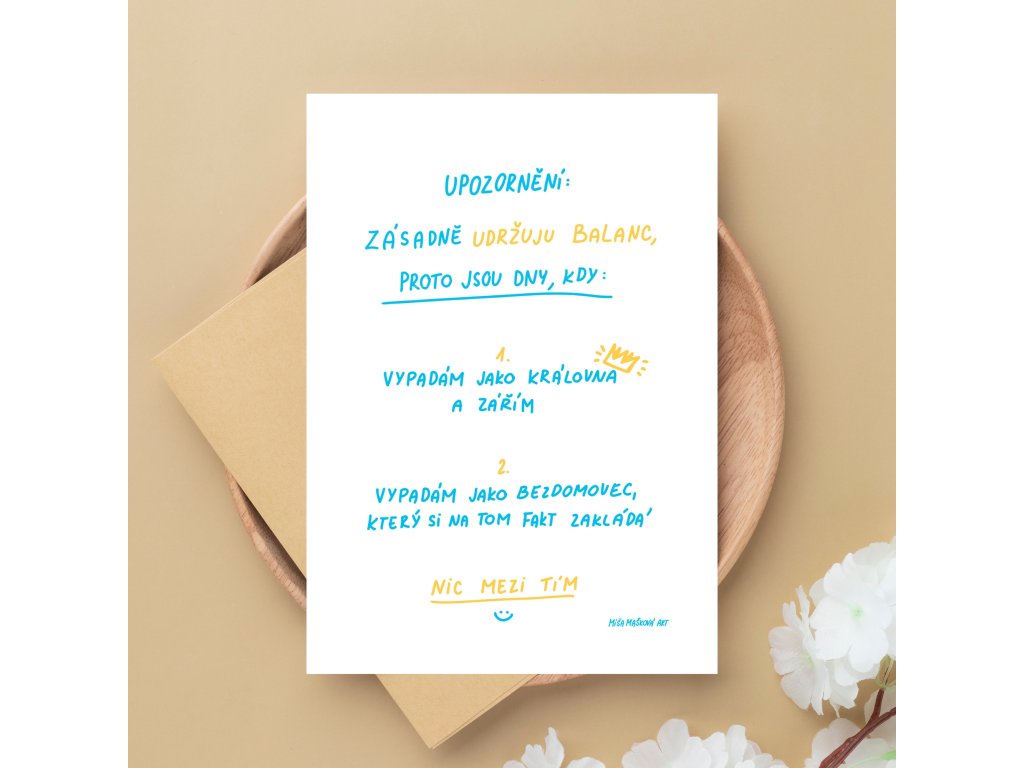 UPOZORNĚNÍ:
ZÁSADNĚ UDRŽUJU BALANC,
PROTO JSOU DNY, KDY:
1.
VYPADÁM JAKO KRÁLOVNA
A ZÁŘÍM
2.
VYPADÁM JAKO BEZDOMOVEC,
KTERÝ SI NA TOM FAKT ZAKLÁDÁ
NIC MEZI TÍM
MÍŠA MAŠKOVÁ ART